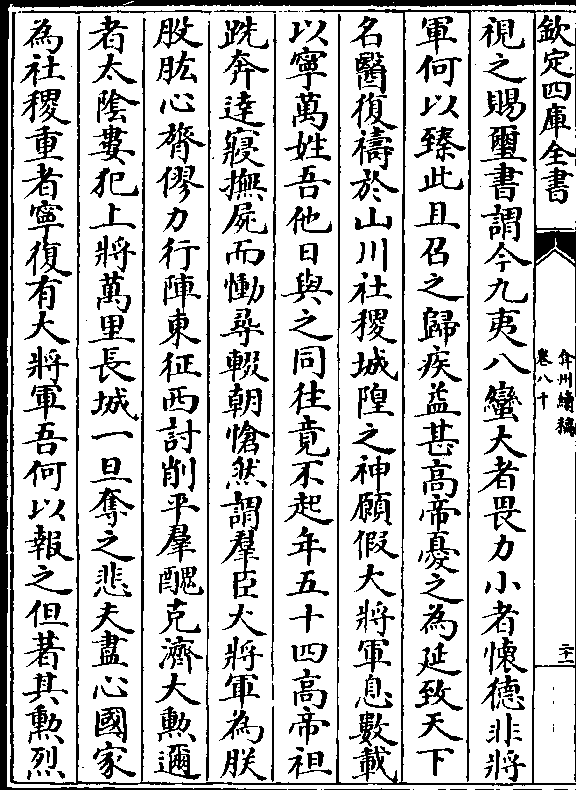 欽定四庫全書
弇州續稿
卷八十
二十一
視之賜璽書謂今九夷八蠻大者畏力小者懷德非將
軍何以臻此且召之歸疾益甚高帝憂之為延致天下
名醫復禱於山川社稷城隍之神願假大將軍息數載
以寧萬姓吾他日與之同往竟不起年五十四高帝袒
跣奔達寢撫屍而慟尋輟朝愴然謂羣臣大將軍為朕
股肱心膂僇力行陣東征西討削平羣醜克濟大勲邇
者太陰婁犯上將萬里長城一旦奪之悲夫盡心國家
為社稷重者寧復有大將軍吾何以報之但著其勲烈